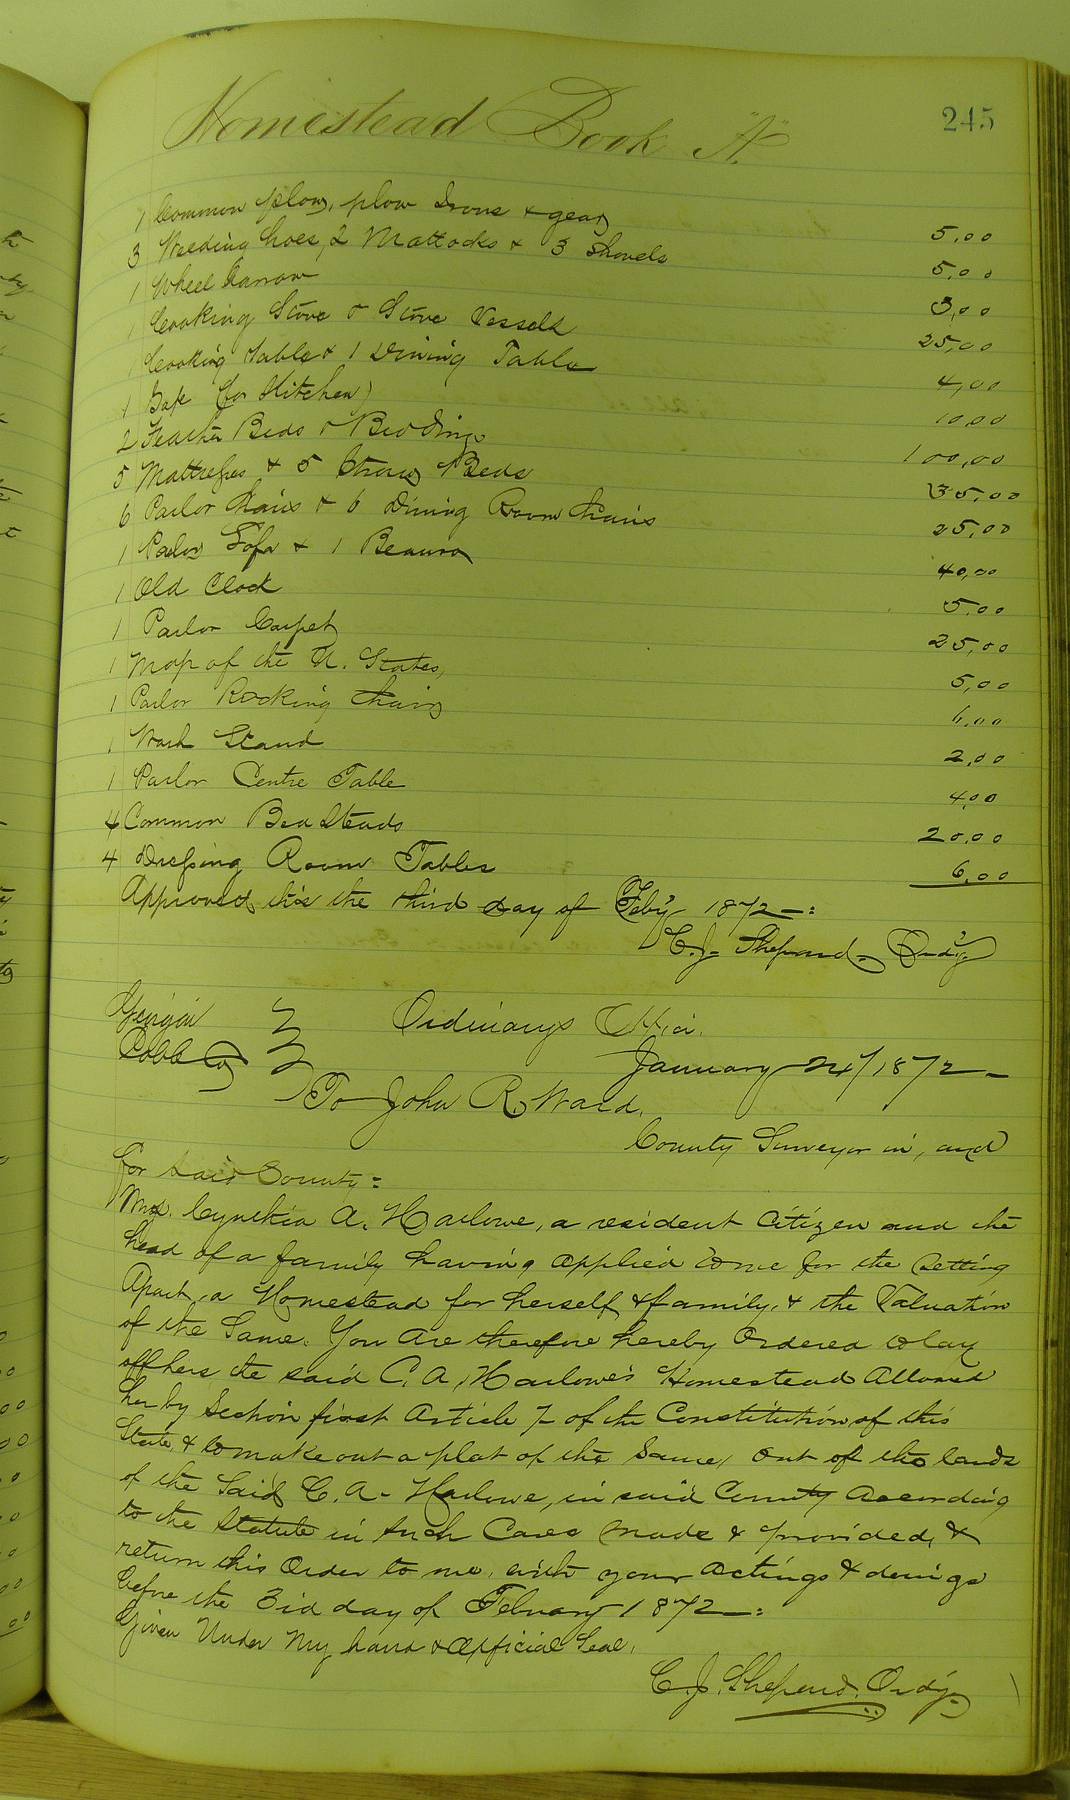 Homestead Book "A" 245
1 Common plow, plow Irons & gear 5,00
3 Weeding hoes, 2 Mattocks & 3 Shovels 5,00
1 Wheel barrow 3,00
1 Cooking Stove & Stove Vessels 25,00
1 Cooking table & 1 Dining Table 4,00
1 Safe (for Kitchen) 10,00
2 Feather Beds & Bedding 100,00
5 Mattresses & 5 Straw Beds 35,00
6 Parlor Chairs & 6 Dining Room Chairs 25,00
1 Parlor Sofa & 1 Beauro 40,00
1 Old Clock 5,00
1 Parlor Carpet 25,00
1 Map of the U. States, 5,00
1 Parlor Rocking Chair 6,00
1 Wash Stand 2,00
1 Parlor Centre Table 4,00
4 Common Bed Steads 20,00
4 Dressing Room Tables 6,00
Approved this the third day of Feb'y 1872—:
C. J. Sheperd, Ord'y
Georgia Ordinarys Office.
Cobb Co January 24/1872—
To John R. Ward,
County Surveyor in, and
for said County=
Mrs. Cynthia A. Harlowe, a resident Citizen and the
head of a family having applied to me for the Setting
Apart, a Homestead for herself & family, & the Valuation
of the Same. You are therefore hereby Ordered to lay
off here the said C. A. Harlowe's Homestead Allowed
her by Section first Article 7 of the Constitution of this
State & to make out a plat of the Same, out of the lands
of the Said C. A. Harlowe, in said County According
to the Statute in such Cases made & provided, &
return this Order to me, with your actings & doings
before the 3rd day of Febuary 1872—:
Given Under My hand & Official Seal,
C. J. Sheperd, Ord'y